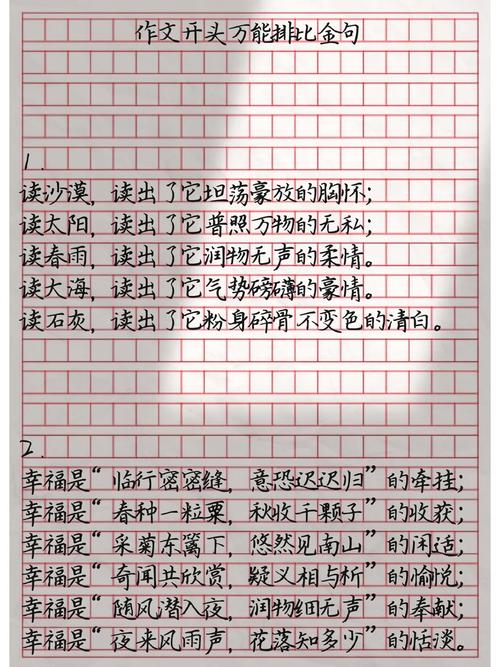 作文开头万能排比金句
1.
读沙漠，读出了它坦荡豪放的胸怀；
读太阳，读出了它普照万物的无私；
读春雨，读出了它润物无声的柔情。
读大海，读出了它气势磅礴的豪情。
读石灰，读出了它粉身碎骨不变色的清白。
2.
幸福是“临行密密缝，意恐迟迟归”的牵挂；
幸福是“春种一粒粟，秋收千颗子”的收获；
幸福是“采菊东篱下，悠然见南山”的闲适；
幸福是“奇闻共欣赏，疑义相与析”的愉悦；
幸福是“随风潜入夜，润物细无声”的奉献；
幸福是“夜来风雨声，花落知多少”的恬淡。